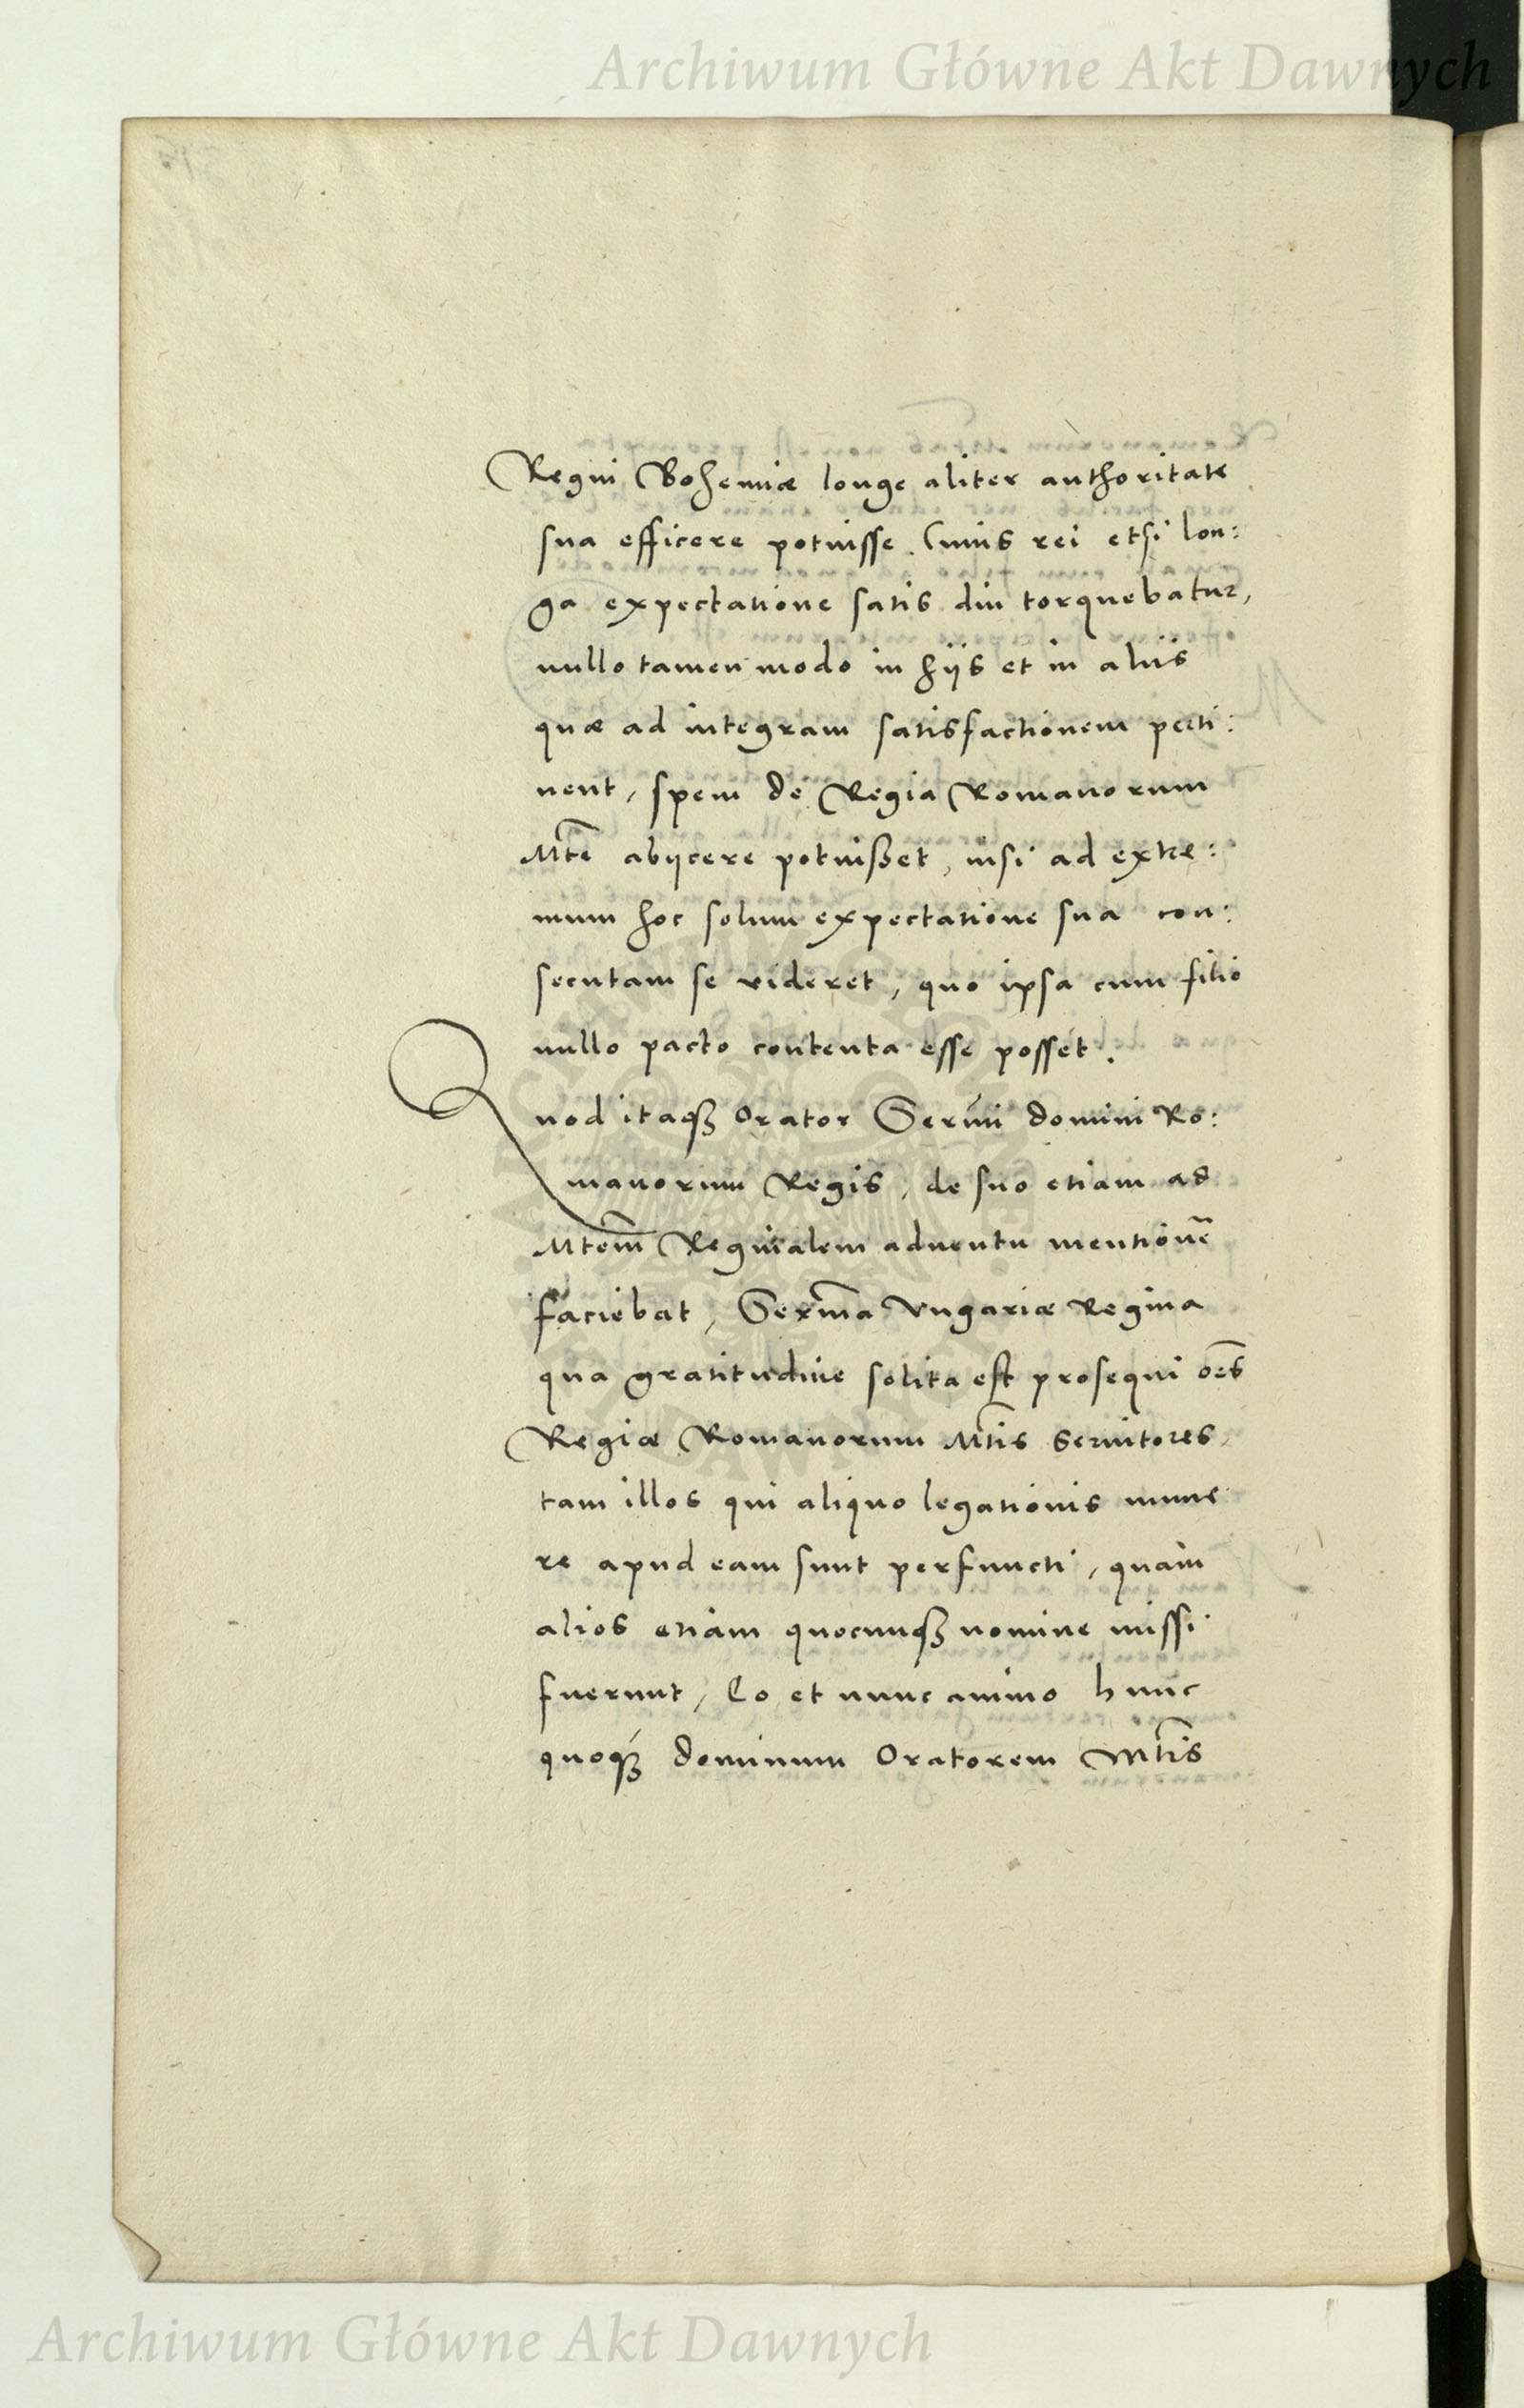 Archiwum Główne Akt Dawnych
Regni Bohemiæ longe aliter authoritate
sua efficere potuisse. Cuius rei etsi lon:
ga expectatione satis diu torquebatur,
nullo tamen modo in hijs et in alijs
quæ ad integram satisfactionem perti:
nent, spem de Regia Romanorum
Mte͂ abijcere potuisset, nisi ad extre:
mum hoc solum expectatione sua con:
secutam se videret, quo ipsa cum filio
nullo pacto contenta esse posset.
Quod itaqꝫ Orator Sermi domini Ro:
manorum Regis, de suo etiam ad
Mtem͂ Reginalem aduentu mentione͂
faciebat, Serma͂ Vngariæ Regina
qua gratitudine solita est prosequi oe͂s
Regiæ Romanorum Mtis͂ seruitores,
tam illos qui aliquo legationis mune
re apud eam sunt perfuncti, quam
alios etiam quocunqꝫ nomine missi
fuerunt, Eo et nunc animo hunc
quoqꝫ dominum Oratorem Mtis͂
Archiwum Główne Akt Dawnych